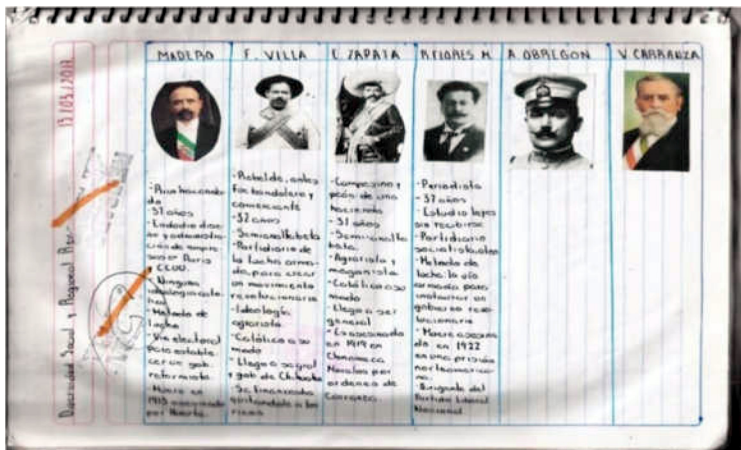 MADERO
F. VILLA
E. ZAPATA
R. FLORES M.
A. OBREGON
V. CARRANZA
13/03/2017
Diversidad Social y Regional
- Rico hacenda-
do
- 37 años
y administra-
ción de empre-
sas en Paris
y EEUU.
- Ninguna
- Metodo de
lucha
- Via electoral
para estable-
cer un gob.
reformista
- Muere en
1913 asesinado
por Huerta.
- Rebelde, antes
fue bandolero y
comerciante
- 32 años
- Semianalfabeta
- Partidiario de
la lucha arma-
da, para crear
un movimiento
revolucionario
- Ideología
agrarista
- Católico a su
modo
- Llega a ser gral
y gob de Chihuahua
- Se financiaba
quitandole a los
ricos
- Campesino y
peón de una
hacienda
- 31 años
- Semianalfa-
beta.
- Agrarista y
magonista
- Católico a su
modo
- Llega a ser
general
- Es asesinado
en 1919 en
Chinameca
Morelos por
ordenes de
Carranza.
- Periodista
- 37 años
- Estudio leyes
sin recibirse
- Partidiario
socialista, ateo
- Metodo de
lucha: la vía
armada para
instaurar un
gobierno revo-
lucionario
- Muere asesina-
do en 1922
en una prisión
norteamerica-
na.
- Dirigente del
Partido Liberal
Nacional